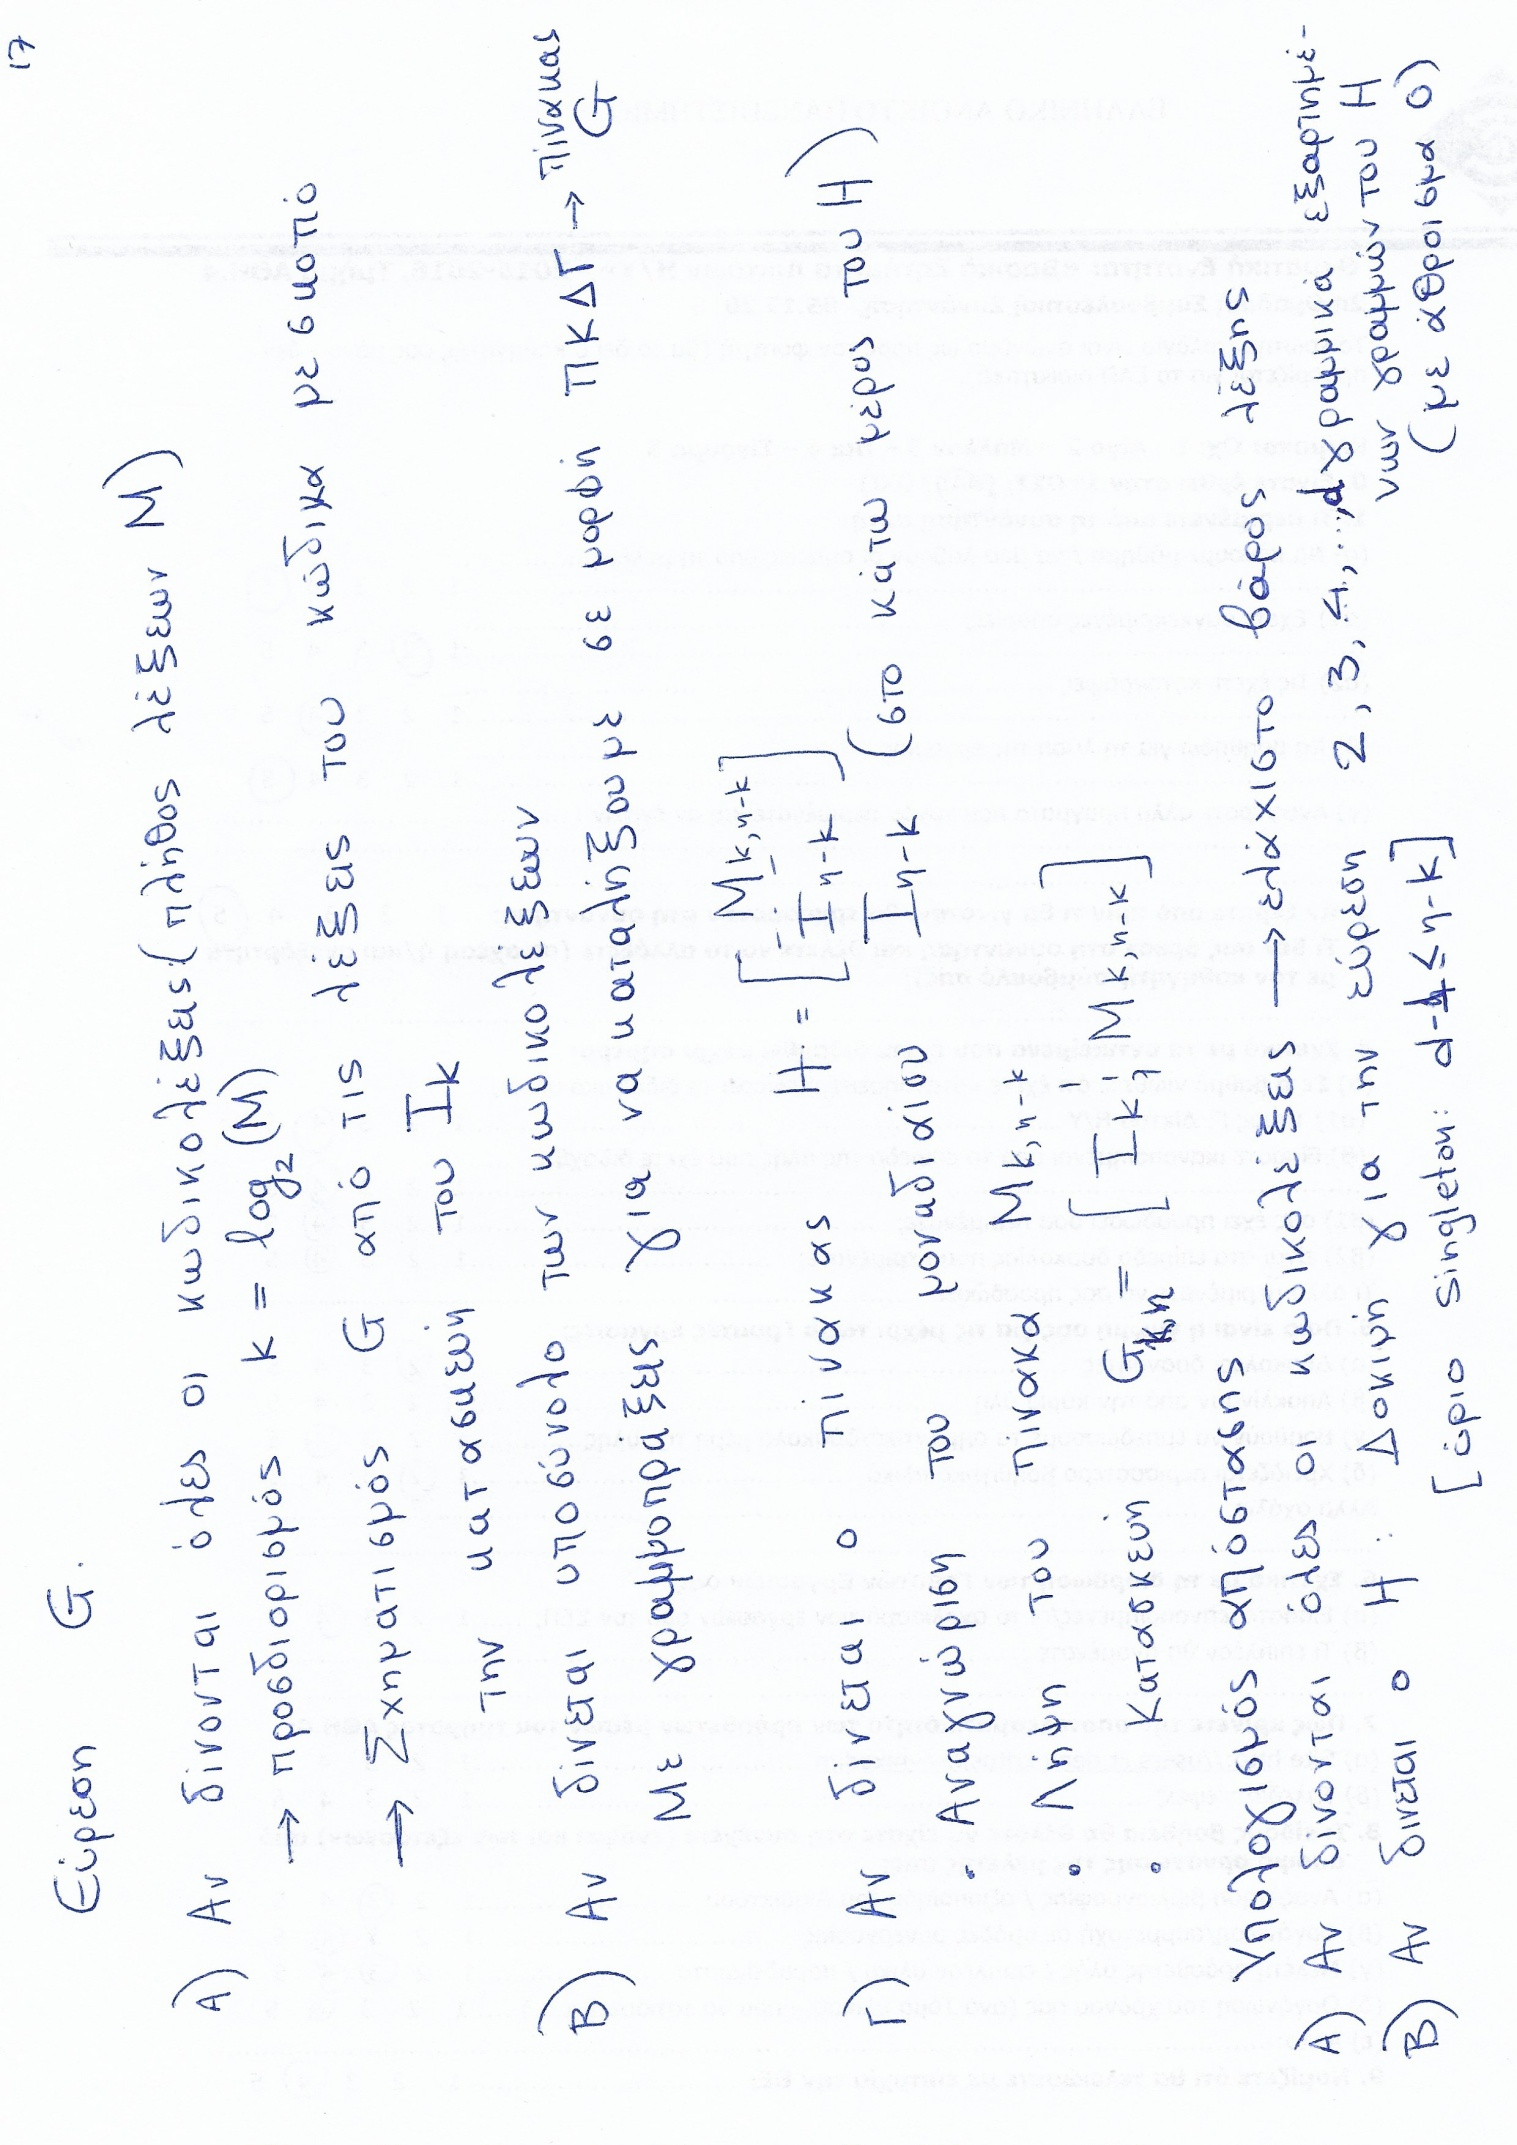 17
Εύρεση G.
Α) Αν δίνονται όλες οι κωδικολέξεις (πλήθος λέξεων Μ)
→ προσδιορισμός k = log₂(M)
→ Σχηματισμός G από τις λέξεις του κώδικα με σκοπό
την κατασκευή του Ik
Β) Αν δίνεται υποσύνολο των κωδικολέξεων
Με γραμμοπράξεις για να καταλήξουμε σε μορφή ΠΚΔΓ → πίνακας G
Γ) Αν δίνεται ο πίνακας H = [ Mk,n-k / In-k ]
• Αναγνώριση του μοναδιαίου In-k (στο κάτω μέρος του H)
• Λήψη του πίνακα Mk,n-k
• Κατασκευή Gk,n = [ Ik ¦ Mk,n-k ]
Υπολογισμός απόστασης
Α) Αν δίνονται όλες οι κωδικολέξεις → ελάχιστο βάρος λέξης
Β) Αν δίνεται ο H: Δοκιμή για την εύρεση 2, 3, 4, ..., d γραμμικά εξαρτημέ-
νων γραμμών του H
[όριο singleton: d-1 ≤ n-k] (με άθροισμα 0)